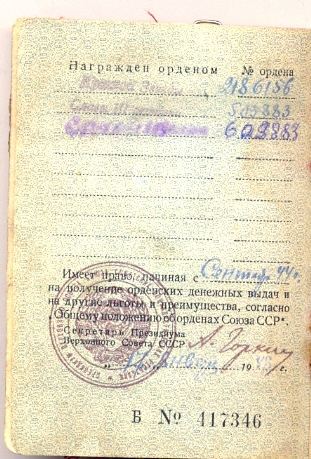 Награжден орденом № ордена
Красная Звезда 2186156
Слава III степени 507883
Слава II степени
Имеет право, начиная с Сентяб. 44 г.
на получение орденских денежных выдач и
на другие льготы и преимущества, согласно
„Общему положению об орденах Союза ССР".
Секретарь Президиума
Верховного Совета СССР А. Горкин
19 г.
Б № 417346